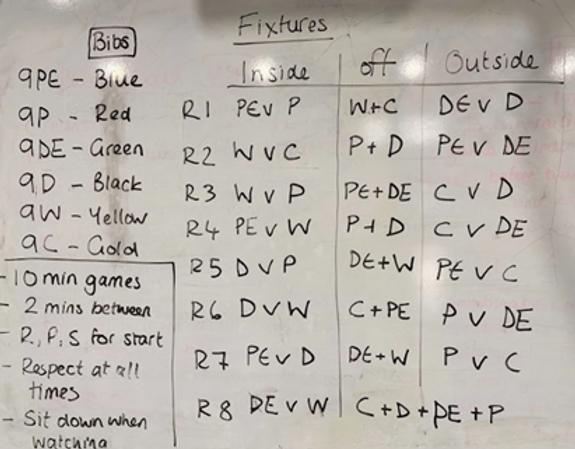 Fixtures
Bibs
Inside off Outside
9PE - Blue
9P - Red
9DE - Green
9D - Black
9W - Yellow
9C - Gold
R1 PE v P W+C DE v D
R2 W v C P + D PE v DE
R3 W v P PE+DE C v D
R4 PE v W P+D C v DE
R5 D v P DE+W PE v C
R6 D v W C+PE P v DE
R7 PE v D DE+W P v C
R8 DE v W C+D+PE+P
- 10 min games
- 2 mins between
- R, P, S for start
- Respect at all
times
- Sit down when
watching